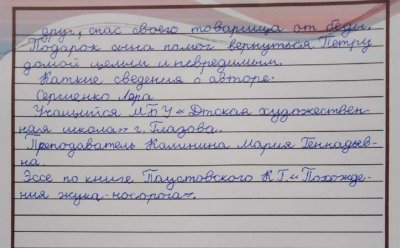 друг, спас своего товарища от беды.
Подарок сына помог вернуться Петру
домой целым и невредимым.
Каткие сведения о авторе.
Сергиенко Лора
Учащийся МБУ «Дтская художествен-
ная школа» г. Глазова.
Преподаватель Калинина Мария Геннадьев-
на.
Эссе по книге Паустовского К.Г. «Похожде-
ния жука-носорога».